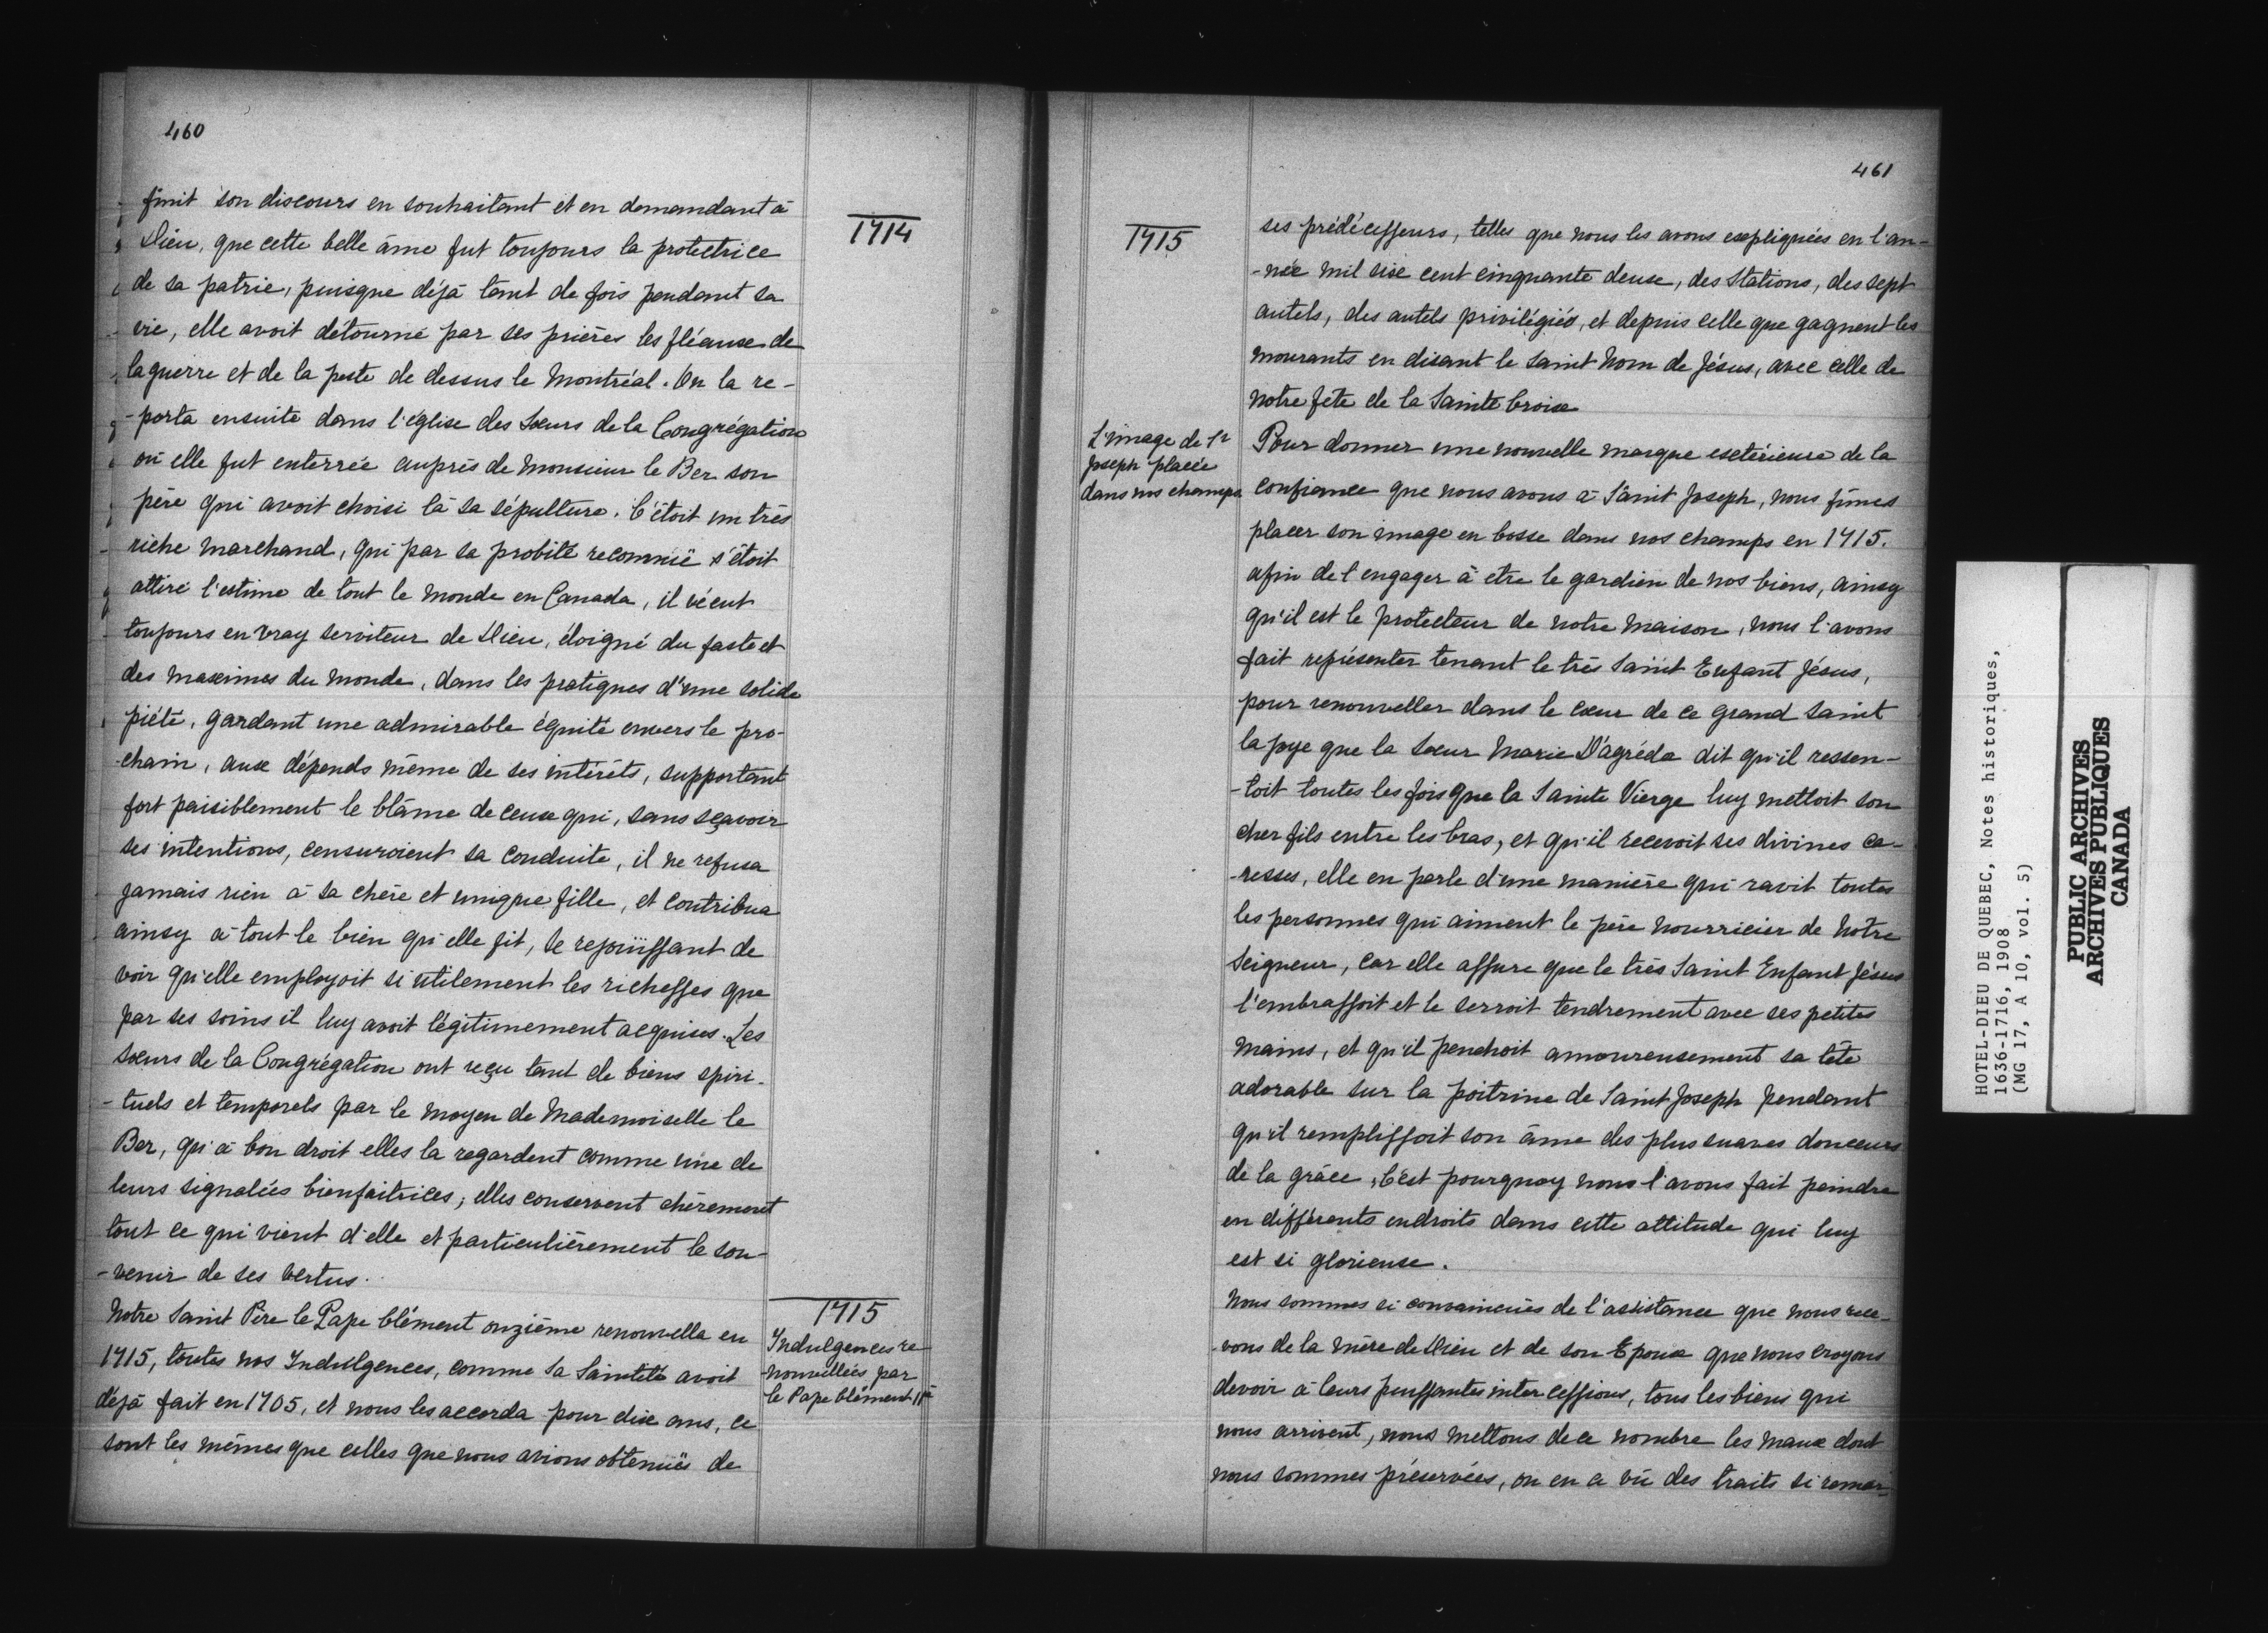 460
finit son discours en souhaitant et en demandant à
Dieu, que cette belle âme fut toujours la protectrice
de sa patrie, puisque déjà tant de fois pendant sa
vie, elle avoit détourné par ses prières les fléaux de
la guerre et de la peste de dessus le Montréal. On la re-
-porta ensuite dans l'église des Sœurs de la Congrégation
où elle fut enterrée auprès de Monsieur le Ber son
père qui avoit choisi là sa sépulture. C'étoit un très
riche marchand, qui par sa probité reconnüe s'étoit
attiré l'estime de tout le monde en Canada, il vécut
toujours en vray serviteur de Dieu, éloigné du faste et
des maximes du monde, dans les pratiques d'une solide
piété, gardant une admirable équité envers le pro-
-chain, aux dépends même de ses intérêts, supportant
fort paisiblement le blâme de ceux qui, sans sçavoir
ses intentions, censuroient sa conduite, il ne refusa
jamais rien à sa chère et unique fille, et contribua
ainsy à tout le bien qu'elle fit, se rejouïssant de
voir qu'elle employoit si utilement les richesses que
par ses soins il luy avoit légitimement acquises. Les
sœurs de la Congrégation ont reçu tant de biens spiri-
-tuels et temporels par le moyen de Mademoiselle le
Ber, qu'à bon droit elles la regardent comme une de
leurs signalées bienfaitrices; elles conservent chèrement
tout ce qui vient d'elle et particulièrement le sou-
-venir de ses vertus.
Notre Saint Père le Pape Clément onzième renouvella en
1715, toutes nos Indulgences, comme Sa Sainteté avoit
déjà fait en 1705, et nous les accorda pour dix ans, ce
sont les mêmes que celles que nous avions obtenuës de
1714
1715
Indulgences re-
-nouvellées par
le Pape Clément 11e
461
1715
L'image de St
Joseph placée
dans nos champs.
ses prédécesseurs, telles que nous les avons expliquées en l'an-
-née mil six cent cinquante deux, des Stations, des sept
autels, des autels privilégiés, et depuis celle que gagnent les
mourants en disant le Saint Nom de Jésus, avec celle de
notre fête de la Sainte Croix
Pour donner une nouvelle marque extérieure de la
confiance que nous avons à Saint Joseph, nous fîmes
placer son image en bosse dans nos champs en 1715.
afin de l'engager à etre le gardien de nos biens, ainsy
qu'il est le protecteur de notre maison, nous l'avons
fait représenter tenant le très Saint Enfant Jésus,
pour renouveller dans le cœur de ce grand Saint
la joye que la Sœur Marie D'agréda dit qu'il ressen-
-toit toutes les fois que la Sainte Vierge luy mettoit son
cher fils entre les bras, et qu'il recevoit ses divines ca-
-resses, elle en parle d'une manière qui ravit toutes
les personnes qui aiment le père nourricier de Notre
Seigneur, car elle assure que le très Saint Enfant Jésus
l'embrassoit et le serroit tendrement avec ses petites
mains, et qu'il penchoit amoureusement sa tête
adorable sur la poitrine de Saint Joseph pendant
qu'il remplissoit son âme des plus suaves douceurs
de la grâce, c'est pourquoy nous l'avons fait peindre
en différents endroits dans cette attitude qui luy
est si glorieuse.
Nous sommes si convaincuës de l'assistance que nous rece-
-vons de la mère de Dieu et de son Epoux que nous croyons
devoir à leurs puissantes intercessions, tous les biens qui
nous arrivent, nous mettons de ce nombre les maux dont
nous sommes préservées, on en a vû des traits si remar-
HOTEL-DIEU DE QUEBEC, Notes historiques,
1636-1716, 1908
(MG 17, A 10, vol. 5)
PUBLIC ARCHIVES
ARCHIVES PUBLIQUES
CANADA